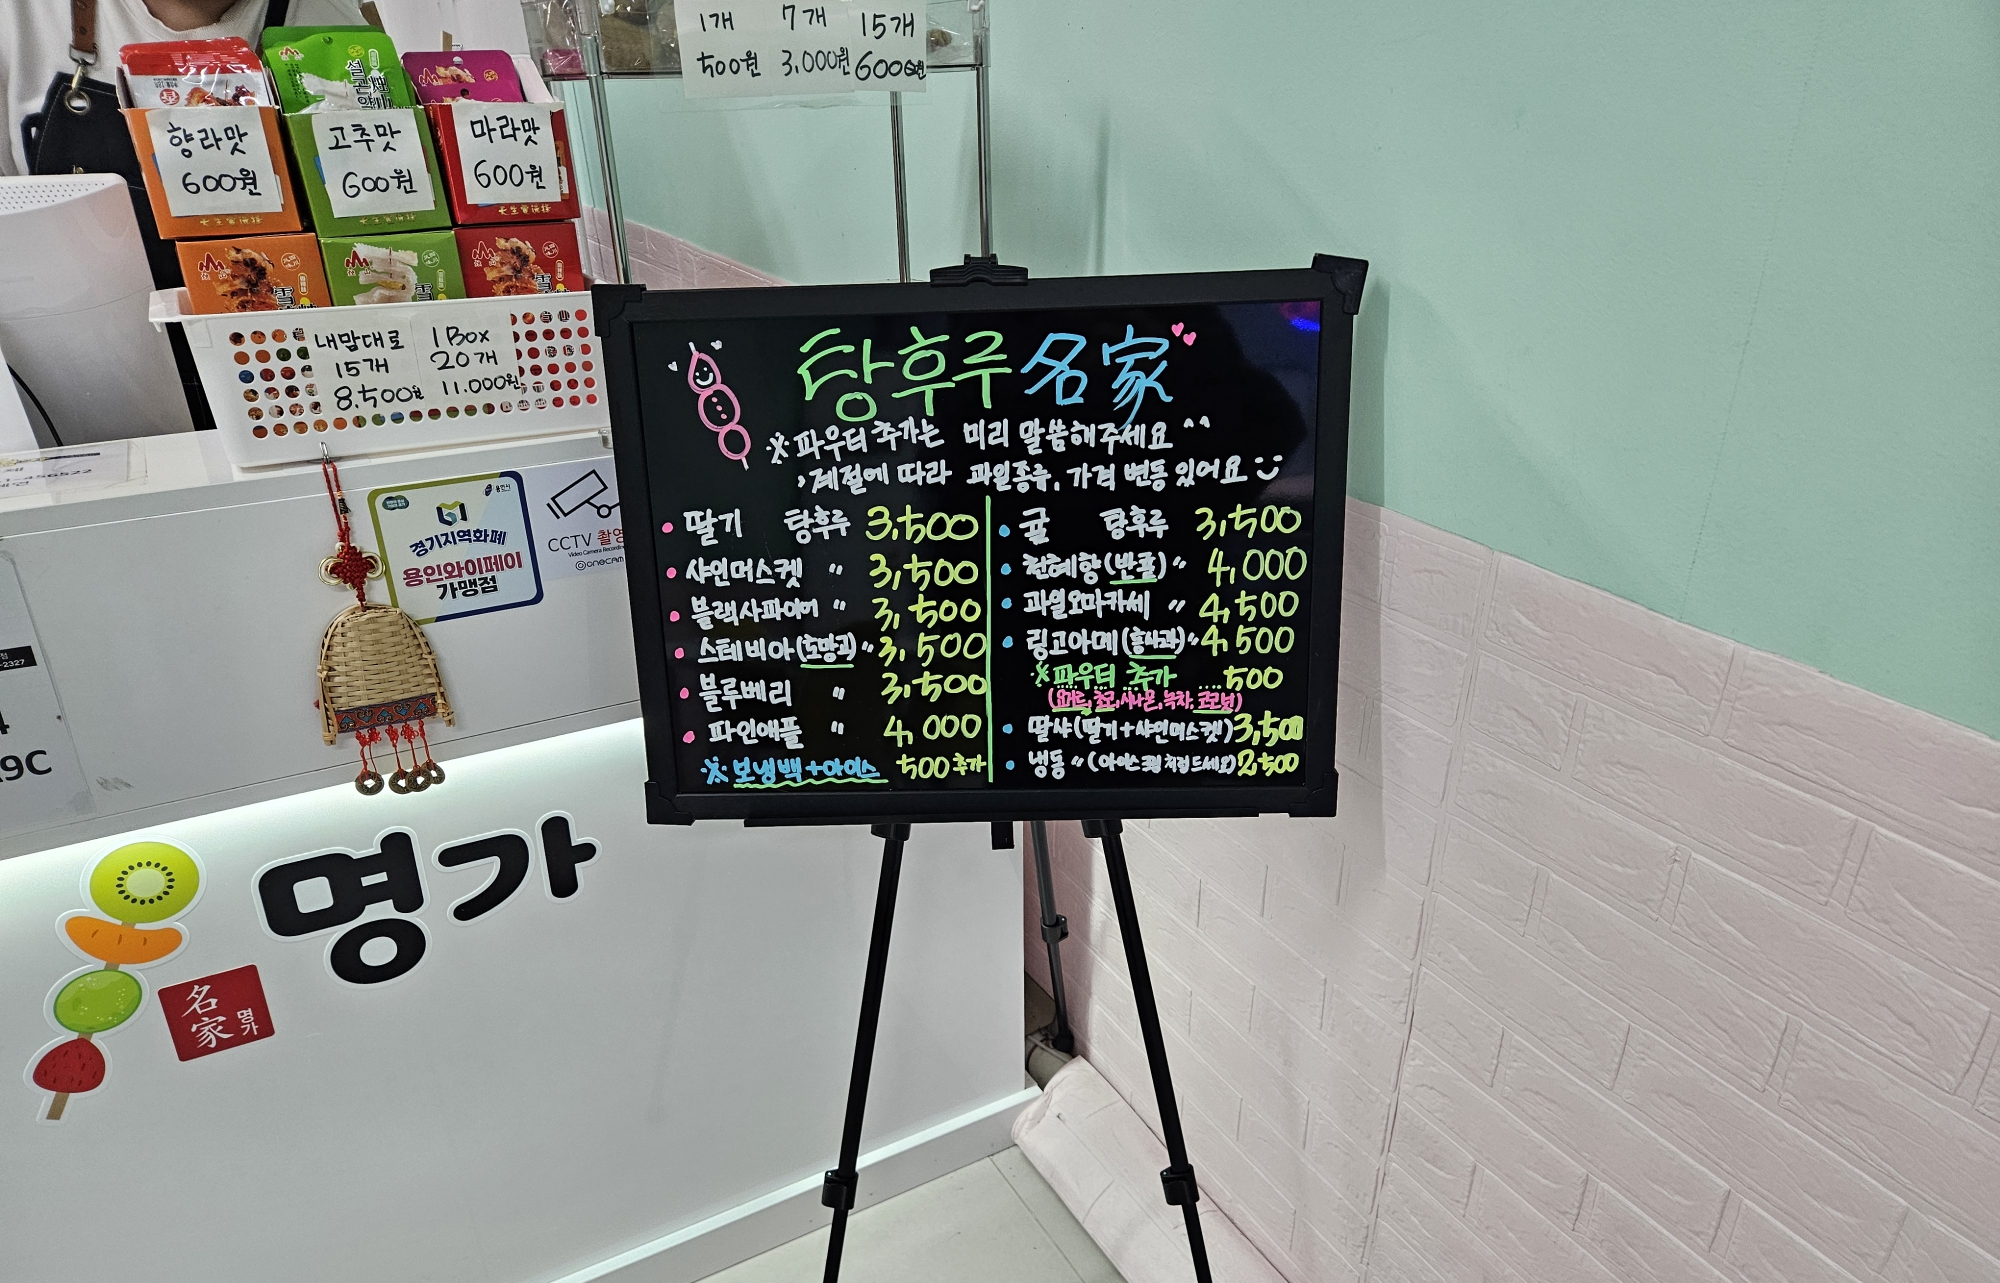 1개 7개 15개
500원 3,000원 6000원
향라맛
600원
고추맛
600원
마라맛
600원
내맘대로
15개
8,500원
1 Box
20개
11,000원
탕후루 名家
※ 파우더 추가는 미리 말씀해주세요 ^^
, 계절에 따라 과일종류, 가격 변동 있어요
• 딸기 탕후루 3,500
• 샤인머스켓 〃 3,500
• 블랙사파이어 〃 3,500
• 스테비아(토망고) 〃 3,500
• 블루베리 〃 3,500
• 파인애플 〃 4,000
※ 보냉백+아이스 500 추가
• 귤 탕후루 3,500
• 천혜향(반쪽) 〃 4,000
• 과일오마카세 〃 4,500
• 링고아메(홍사과) 〃 4,500
※ 파우더 추가 .... 500
(요거트, 초코, 시나몬, 녹차, 코코넛)
• 딸샤(딸기+샤인머스켓) 3,500
• 냉동 〃 (아이스크림처럼드세요) 2,500
용인시
경기지역화폐
용인와이페이
가맹점
CCTV 촬영
Video Camera Recording
ONECAM
-2327
A9C
명가
名家
명가